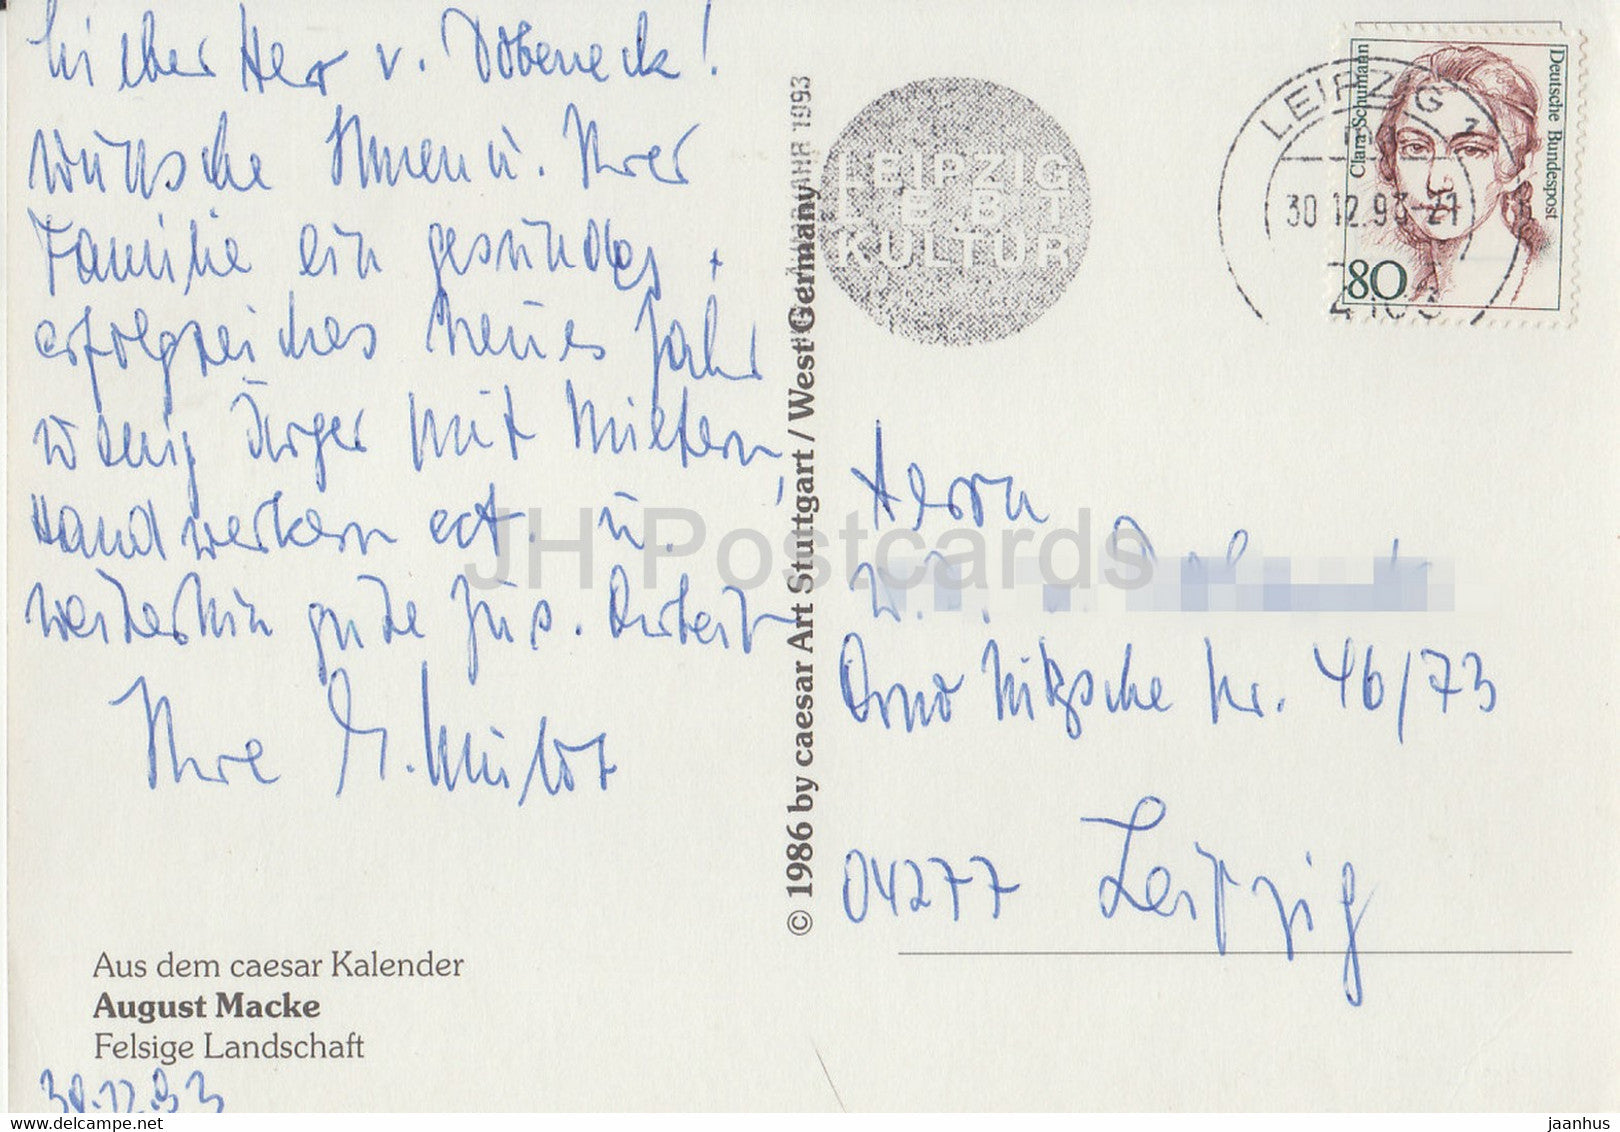 Lieber Herr v. Döbeneck!
wünsche Ihnen u. Ihrer
Familie ein gesundes +
erfolgreiches Neues Jahr
wenig Ärger mit Mietern,
Handwerkern ect. u.
weiterhin gute Zus. Arbeit
Ihre
Aus dem caesar Kalender
August Macke
Felsige Landschaft
30.12.93
© 1986 by caesar Art Stuttgart / West Germany
LEIPZIG
LEBT
KULTUR
1993
LEIPZIG
30.12.93-21
Clara Schumann
Deutsche Bundespost
80
Herrn
Arno Nitzsche Nr. 46/73
04277 Leipzig
JH Postcards
delcampe.net
jaanhus